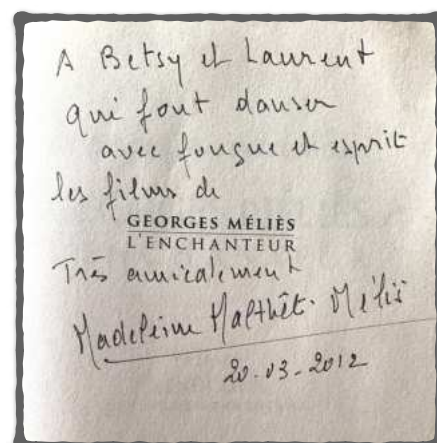 A Betsy et Laurent
qui font danser
avec fougue et esprit
les films de
GEORGES MÉLIÈS
L'ENCHANTEUR
Très amicalement
Madeleine Malthête-Méliès
20-03-2012